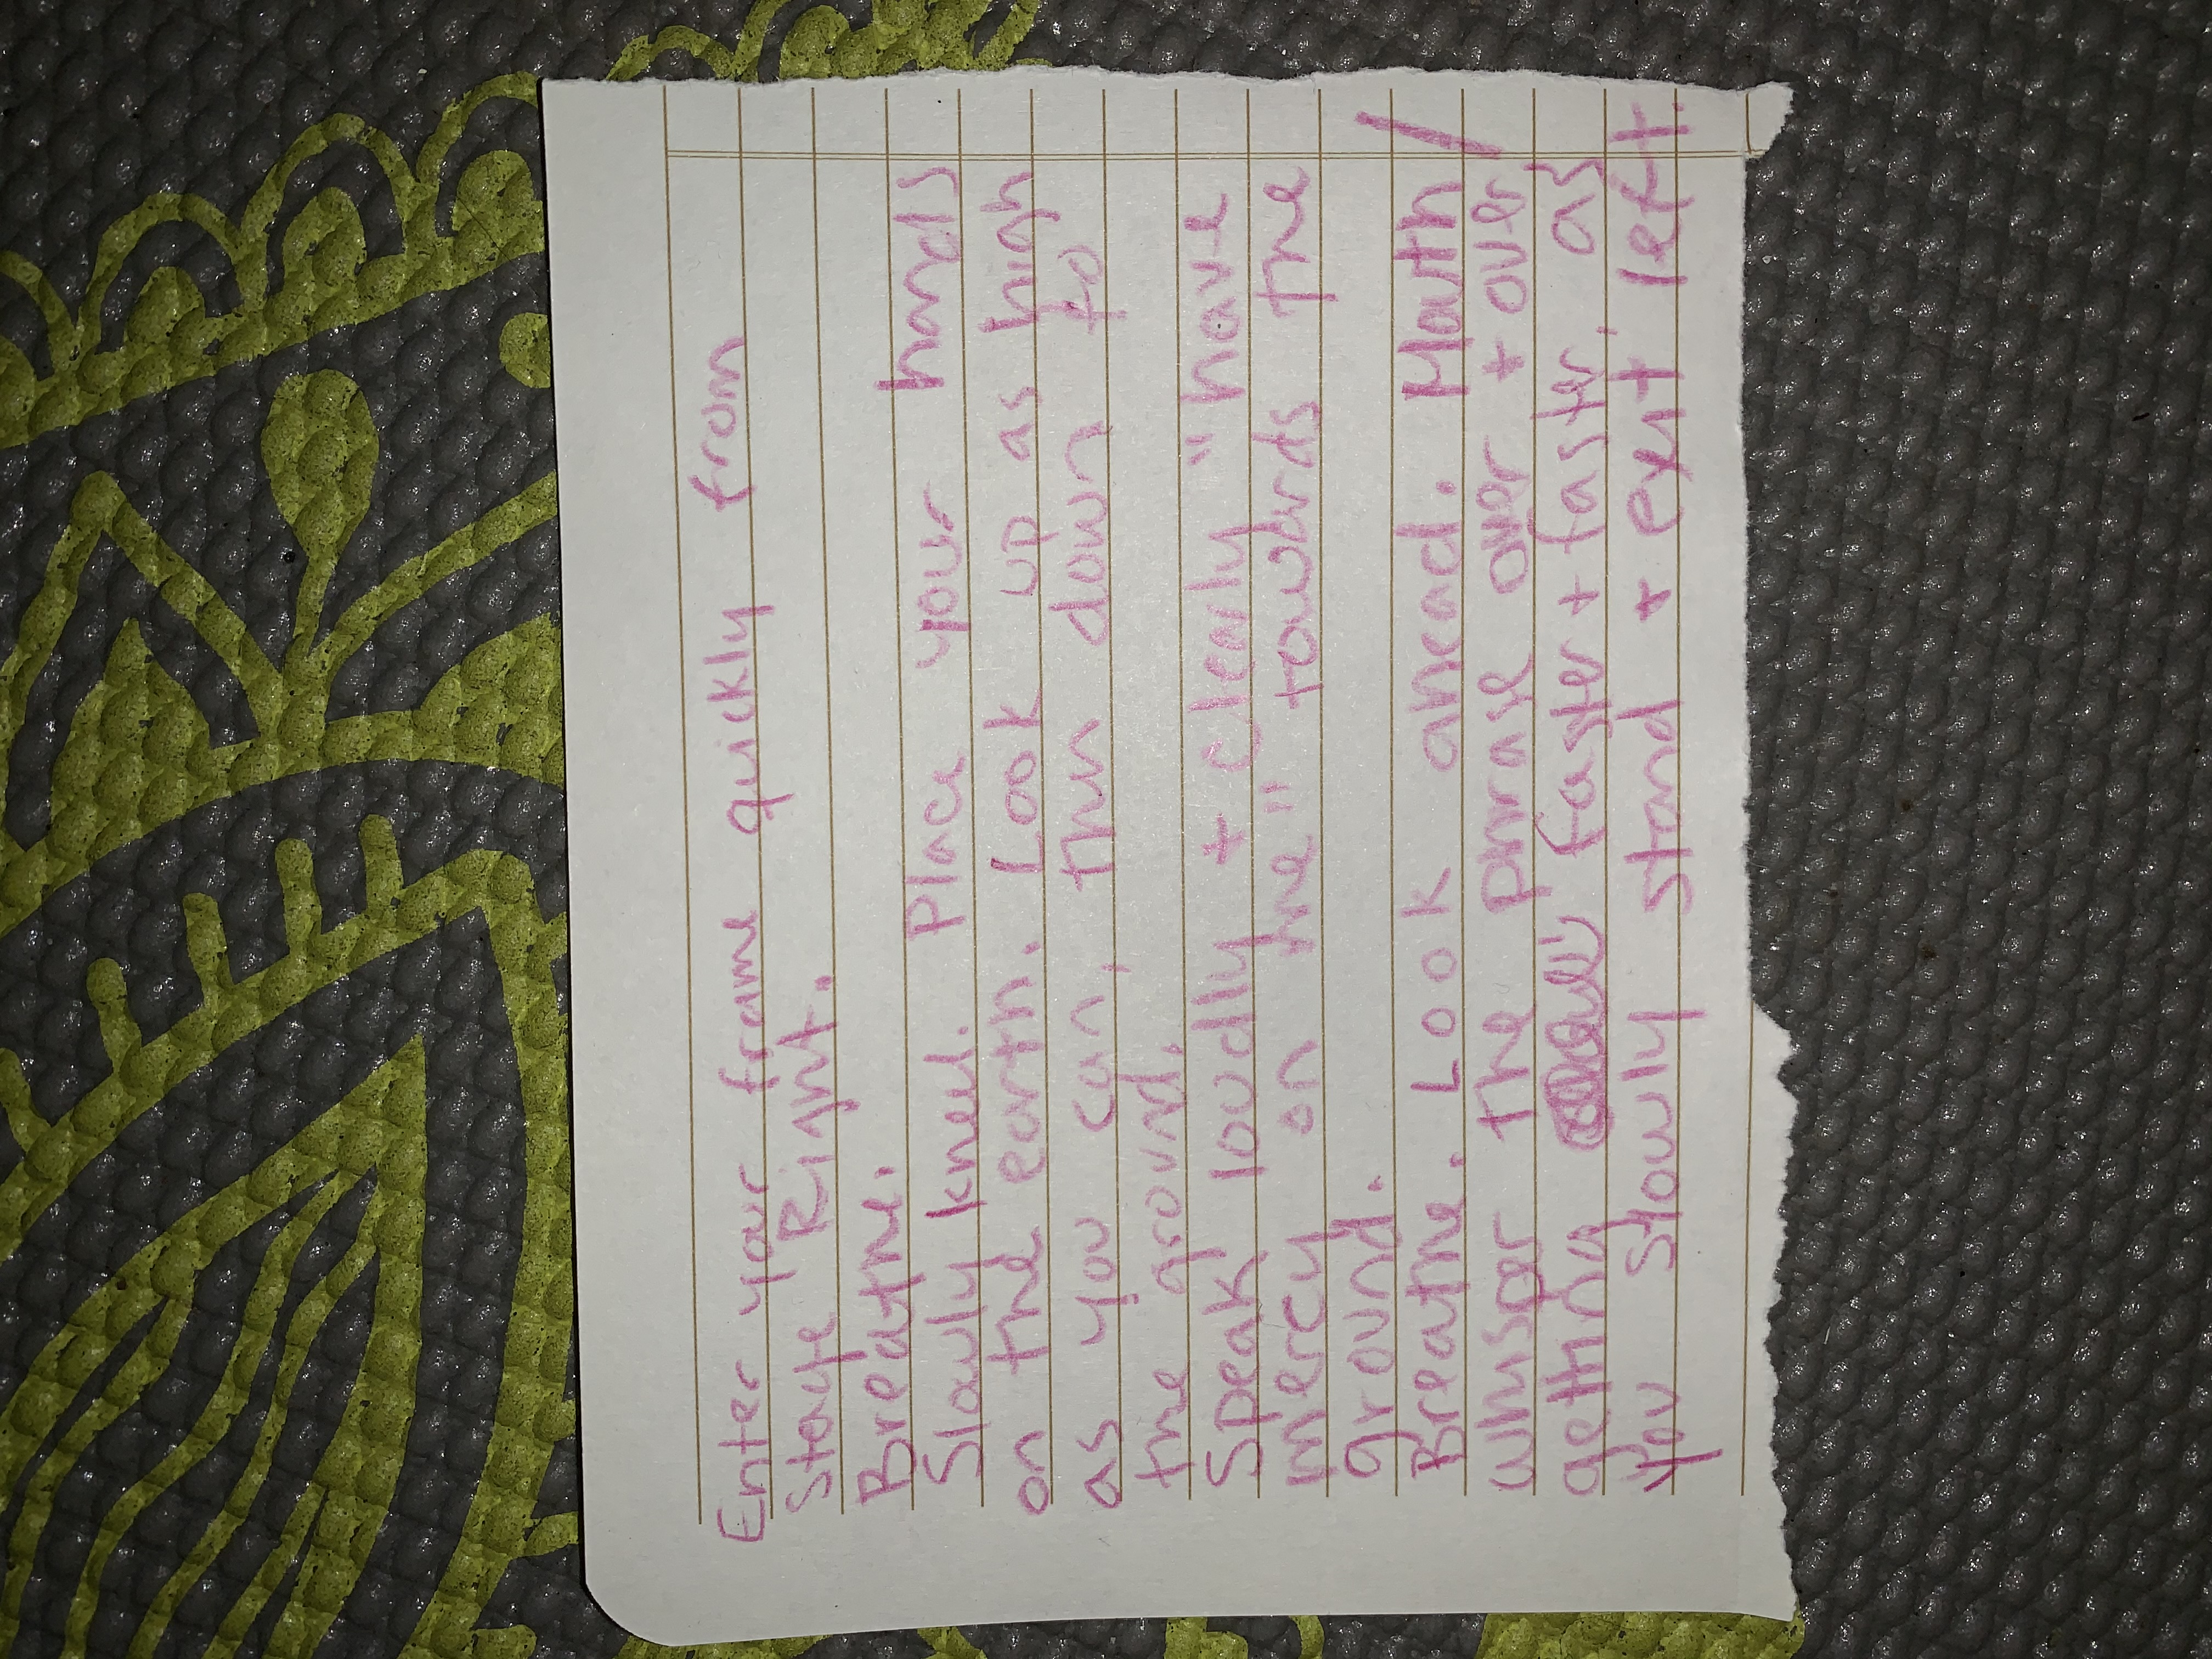 Enter your frame quickly from
stage Right.
Breathe.
Slowly kneel. Place your hands
on the earth. Look up as high
as you can, then down to
the ground.
Speak loudly + clearly "have
mercy on me" towards the
ground.
Breathe. Look ahead. Mouth /
whisper the phrase over + over
getting faster + faster, as
you slowly stand + exit left.